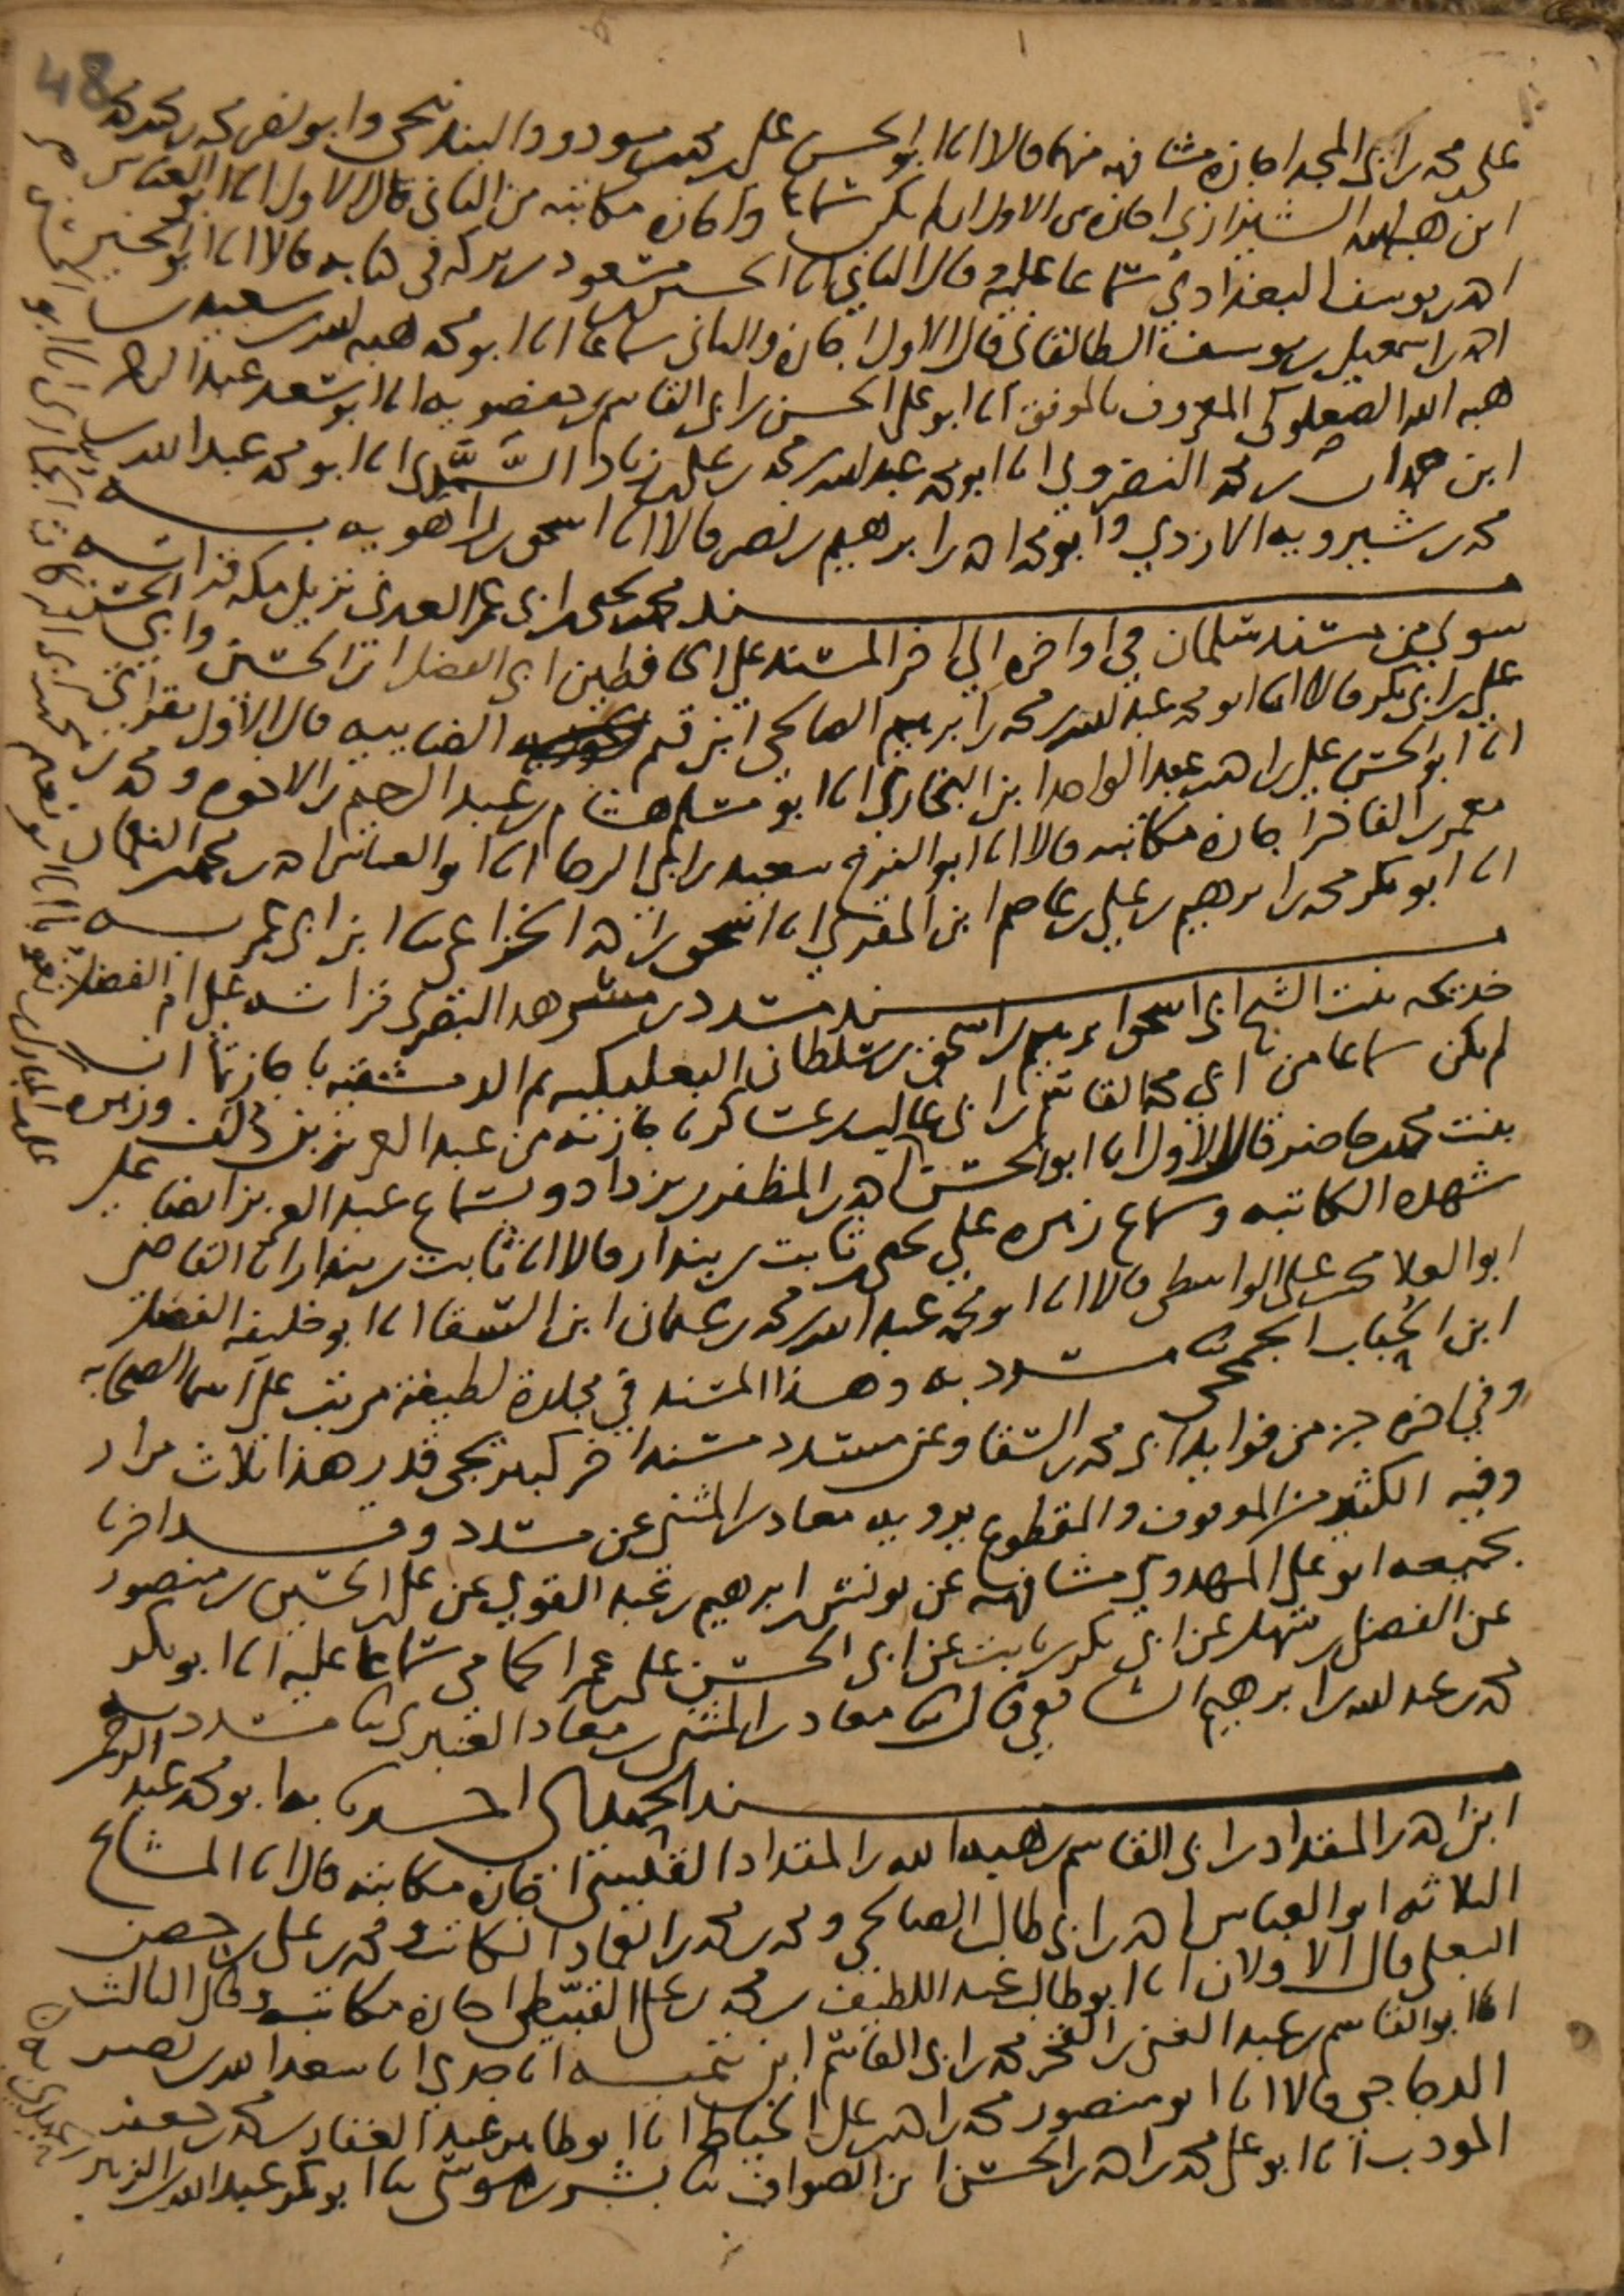 علي بن محمد بن ابي المجد اجازة مشافهة منهما قالا انا ابو الحسن علي بن محمد بن ممدود البندنيجي وابو نصر محمد بن محمد بن محمد
ابن هبة الله الشيرازي اجازة من الاول ان لم يكن سماعا واجازة مكاتبة من الثاني قال الاول انا ابو العباس
احمد بن يوسف البغدادي سماعا عليه وقال الثاني انا الحسن بن مسعود بن بركة في كتابه قالا انا ابو الخير
احمد بن اسمعيل بن يوسف الطالقاني قال الاول اجازة والثاني سماعا انا ابو محمد هبة الله بن سعيد بن
هبة الله الصعلوكي المعروف بالموفق انا ابو علي الحسن بن ابي القاسم بن حفصويه انا ابو سعد عبد الرحمن
ابن حمدان بن محمد النضروي انا ابو محمد عبد الله بن محمد بن علي بن زياد السَّمَّذي انا ابو محمد عبد الله بن
محمد بن شيرويه الازدي وابو محمد احمد بن ابرهيم بن نصر قالا انا اسحق بن راهويه به
مسند محمد بن يحيى بن ابي عمر العدني نزيل مكة قراته
سوى من مسند سلمان في اواخره الى اخر المسند على الحافظين ابي الفضل ابن الحسين وابي الحسن
علي بن ابي بكر قالا انا ابو محمد عبد الله بن محمد بن ابرهيم الصالحي ابن قيم الضيائية قال الاول بقراتي
انا ابو الحسن علي بن احمد بن عبد الواحد ابن البخاري انا ابو مسلم هشام بن عبد الرحيم بن الاخوة ومحمد بن
معمر بن الفاخر اجازة مكاتبة قالا انا ابو الفرج سعيد بن ابي الرجا انا ابو العباس احمد بن محمد بن النعمان
انا ابو بكر محمد بن ابرهيم بن علي بن عاصم ابن المقري انا اسحق بن احمد الخزاعي ثنا ابن ابي عمر به
مسند مسدد بن مسرهد البصري قراته على ام الفضل
خديجة بنت الشيخ ابي اسحق ابرهيم بن اسحق بن سلطان البعلبكية ثم الدمشقية باجازتها ان
لم يكن سماعا من ابي محمد القاسم بن ابي غالب بن عساكر باجازته من عبد العزيز بن دلف وزهرة
بنت محمد بن حاضر قال الاول انا ابو الحسن احمد بن المظفر بن يزداد وبسماع عبد العزيز ايضا على
شهدة الكاتبة وسماع زهرة على يحيى بن ثابت بن بندار قالا انا ثابت بن بندار انا القاضي
ابو العلا محمد بن علي الواسطي قالا انا ابو محمد عبد الله بن محمد بن عثمان ابن السقا انا ابو خليفة الفضل
ابن الحباب الجمحي ثنا مسدد به وهذا المسند في مجلدة لطيفة مرتب على اسما الصحابة
وفي اخره جز من فوايد ابي محمد بن السقا وعن مسدد مسند اخر كبير يجي قدر هذا ثلاث مرار
وفيه الكثير من الموقوف والمقطوع يرويه معاذ بن المثنى عن مسدد وقد اخبرنا
بجميعه ابو علي المهدوي مشافهة عن يونس بن ابرهيم بن عبد القوي عن علي بن الحسين بن منصور
عن الفضل بن سهل عن ابي بكر بن ثابت عن ابي الحسن علي بن عمر الحمامي سماعا عليه انا ابو بكر
محمد بن عبد الله بن ابرهيم الشافعي قال ثنا معاذ بن المثنى بن معاذ العنبري ثنا مسدد به
مسند الحميدي اخبرنا به ابو محمد عبد الرحمن
ابن احمد بن المقداد بن ابي القاسم بن هبة الله بن المقداد القيسي اجازة مكاتبة قال انا المشايخ
الثلاثة ابو العباس احمد بن ابي طالب الصالحي ومحمد بن محمد بن العماد الكاتب ومحمد بن علي بن حصن
البعلي قال الاولان انا ابو طالب عبد اللطيف بن محمد بن علي القبيّطي اجازة مكاتبة وقال الثالث
انا ابو القاسم بن عبد الغني بن الفخر محمد بن ابي القاسم ابن تيمية انا جدي انا سعد الله بن نصر
الدجاجي قالا انا ابو منصور محمد بن احمد بن علي الخياط انا ابو طاهر عبد الغفار بن محمد بن جعفر
المودب انا ابو علي محمد بن احمد بن الحسن ابن الصواف ثنا بشر بن موسى ثنا ابو بكر عبد الله بن الزبير
48